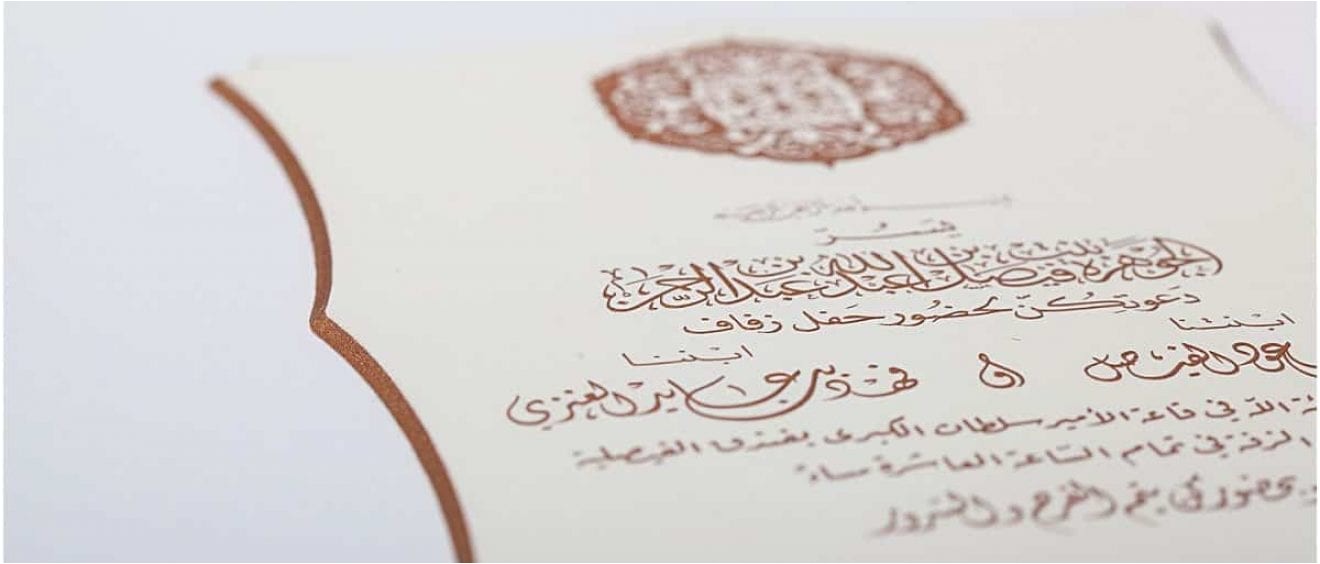 بسم الله الرحمن الرحيم
يسر
الجوهرة بنت فيصل بن عبدالله بن عبدالرحمن
دعوتكن لحضور حفل زفاف
ابنتنا
ابننا
الفيصل
و
فهد بن عايد العنزي
في قاعة الأمير سلطان الكبرى بفندق الفيصلية
الزفة في تمام الساعة العاشرة مساءً
بحضوركن يعم الفرح والسرور